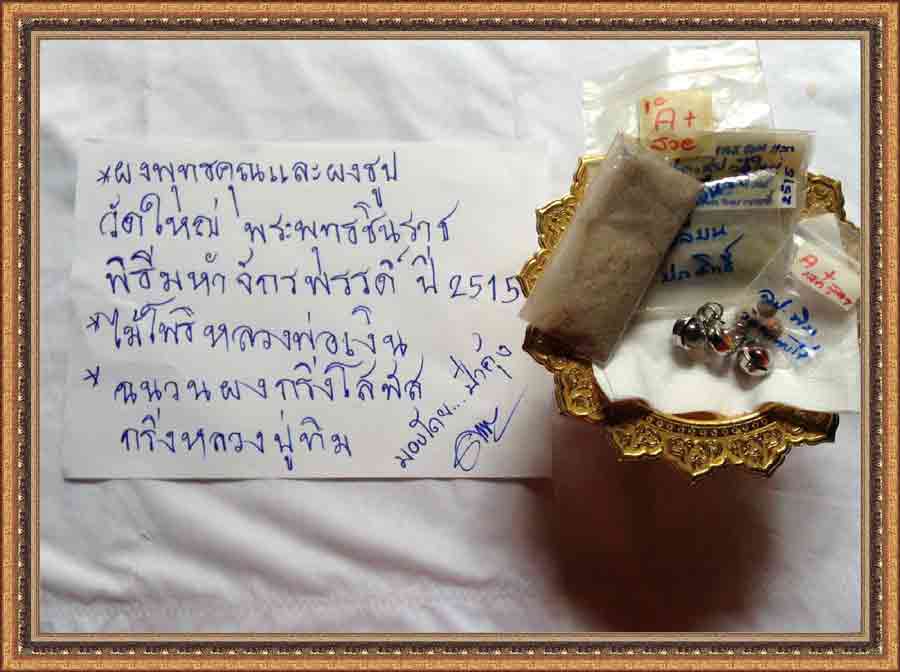 *ผงพุทธคุณและผงธูป
วัดใหญ่ พระพุทธชินราช
พิธีมหาจักรพรรดิ์ ปี 2515
*ไม้โพธิ์หลวงพ่อเงิน
* ฉนวนผงกริ่งโสฬส
กริ่งหลวงปู่ทิม
มอบโดย... ป๋าคุง
A+
สวย
2515
A+